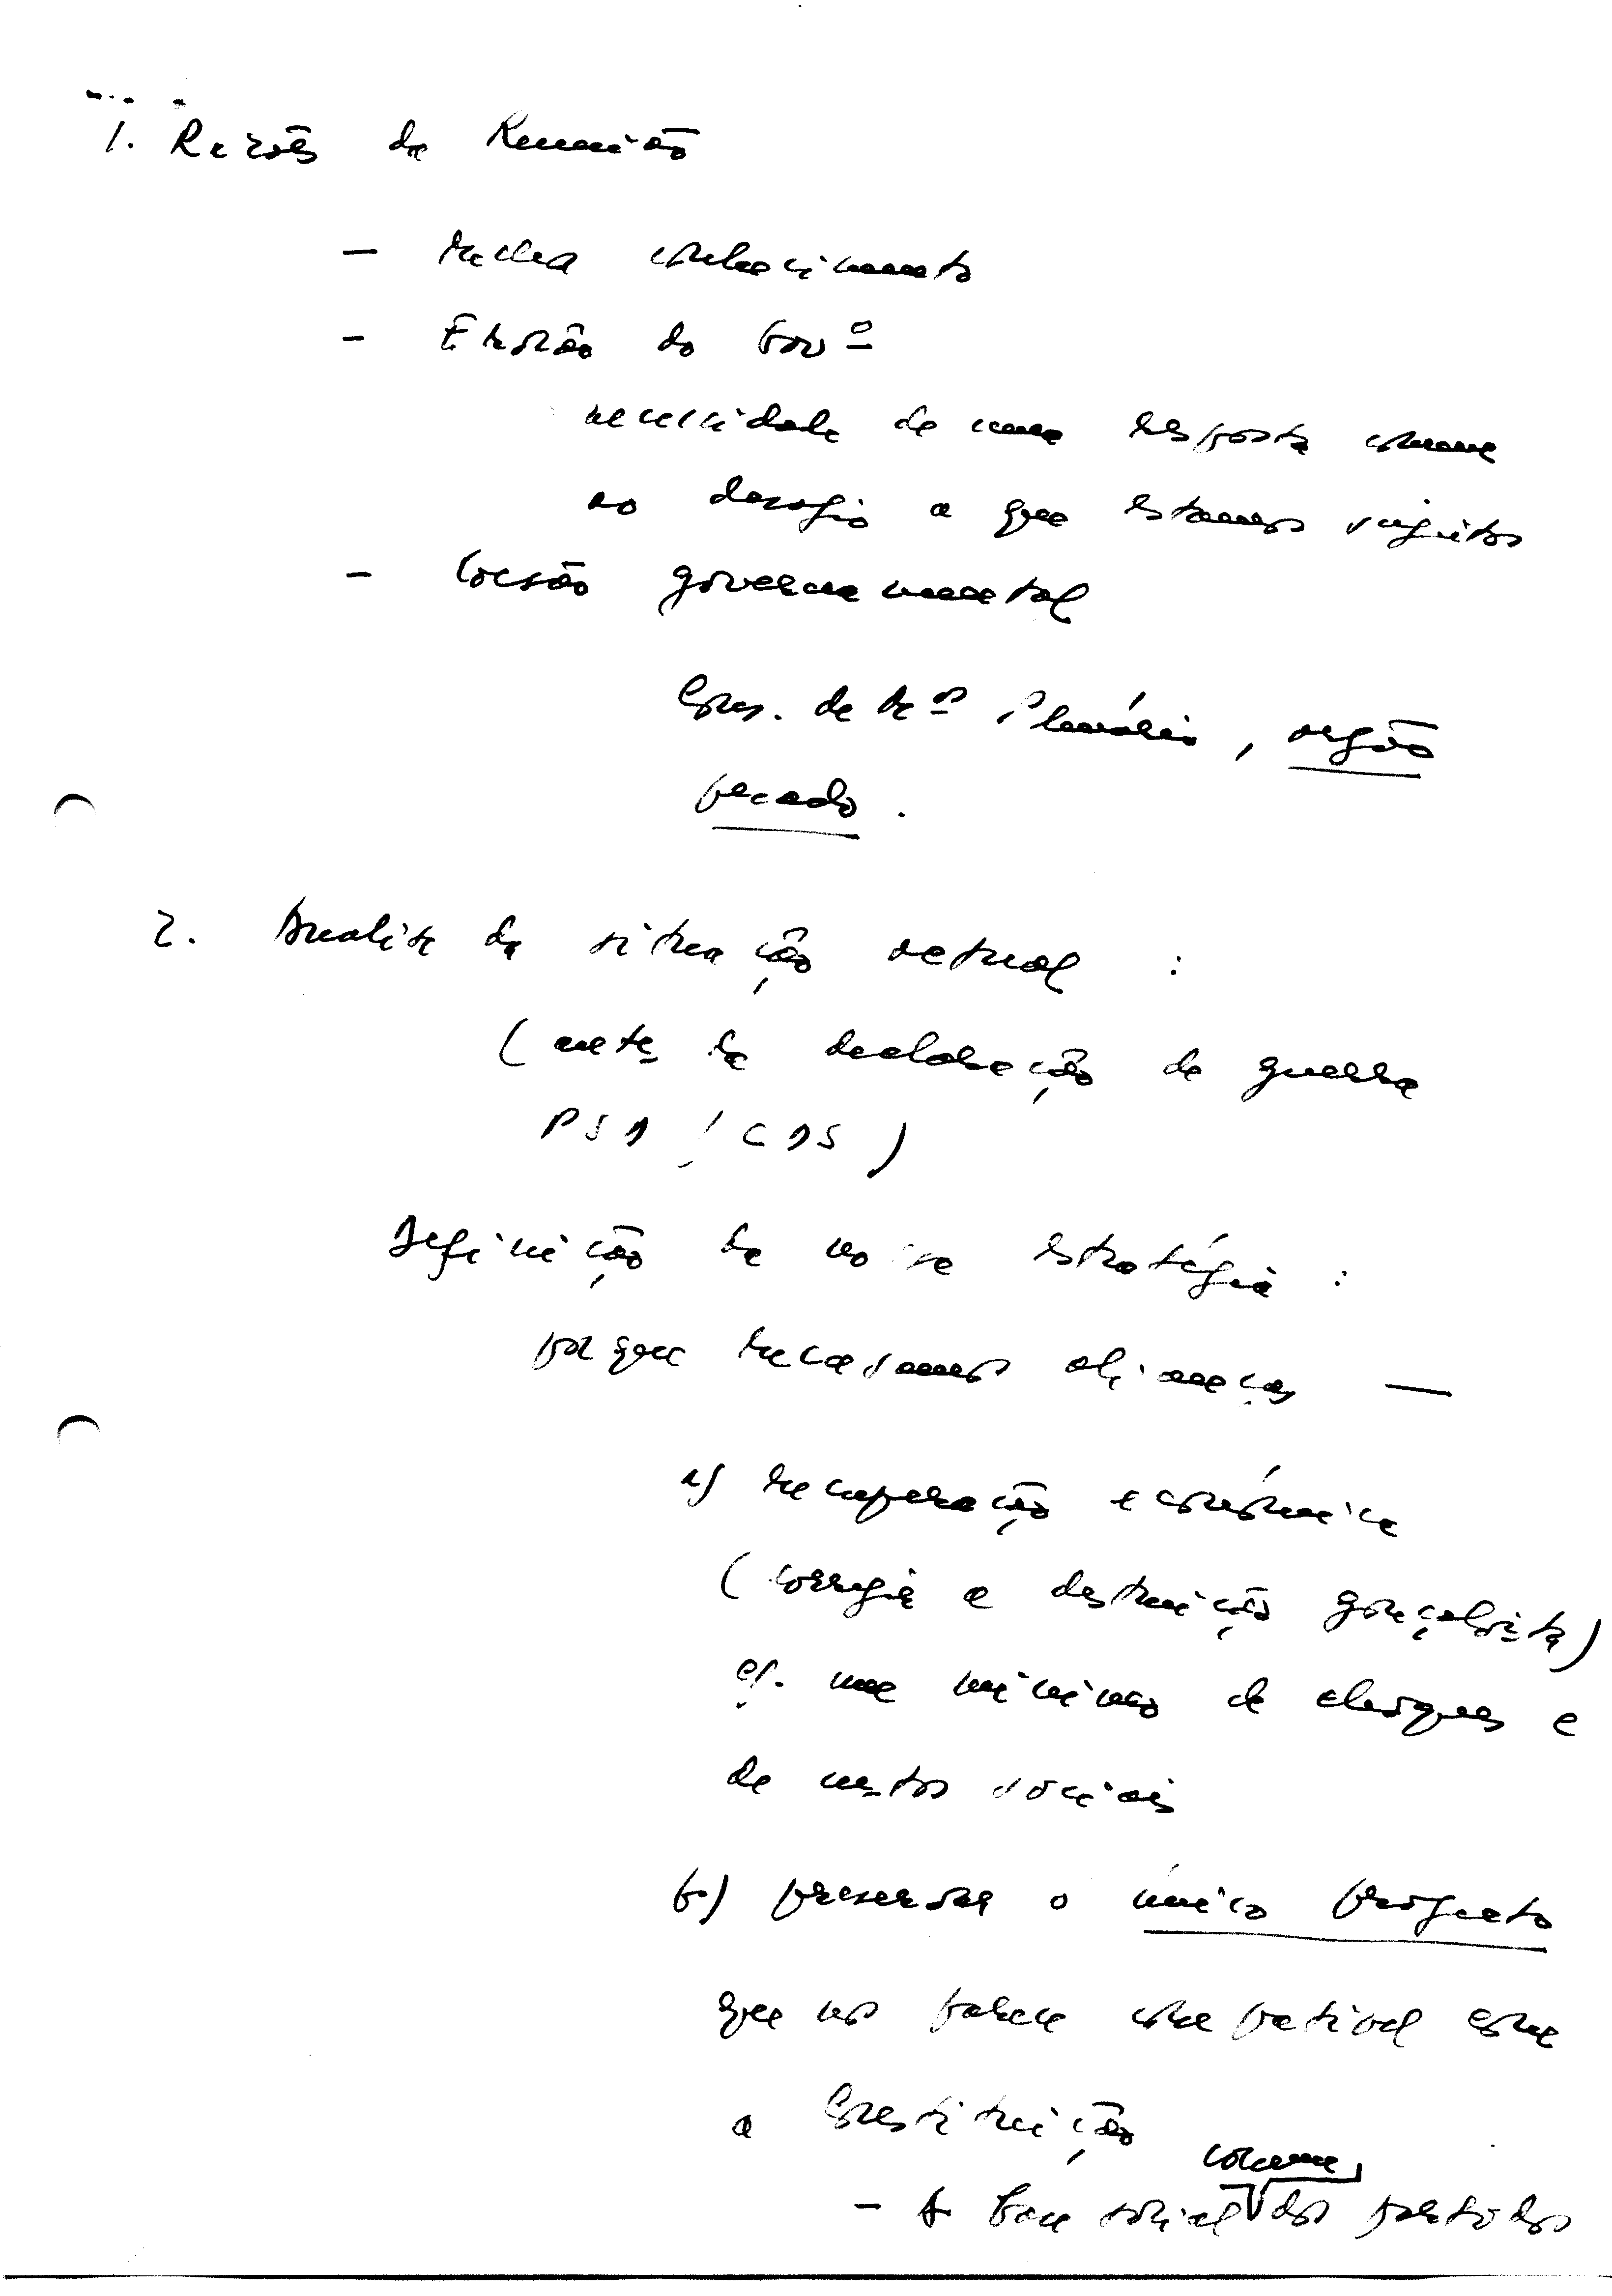 1. Razões da Reunião
– melhor conhecimento
– Erosão do Govº
necessidade de uma resposta comum
ao desafio a que estamos sujeitos
– Coesão governamental
Cons. de Mºs Plenário, orgão
pesado.
2. Analise da situação actual :
(antes da declaração de guerra
PSD / CDS)
Definição da nossa estratégia :
porque recusamos alianças —
a) recuperação económica
(corrigir a destruição gonçalvista)
c/. um minimo de choques e
de custos sociais
b) preservar o único projecto
que nos parece compativel com
a Constituição
comum
– A base social dos partidos